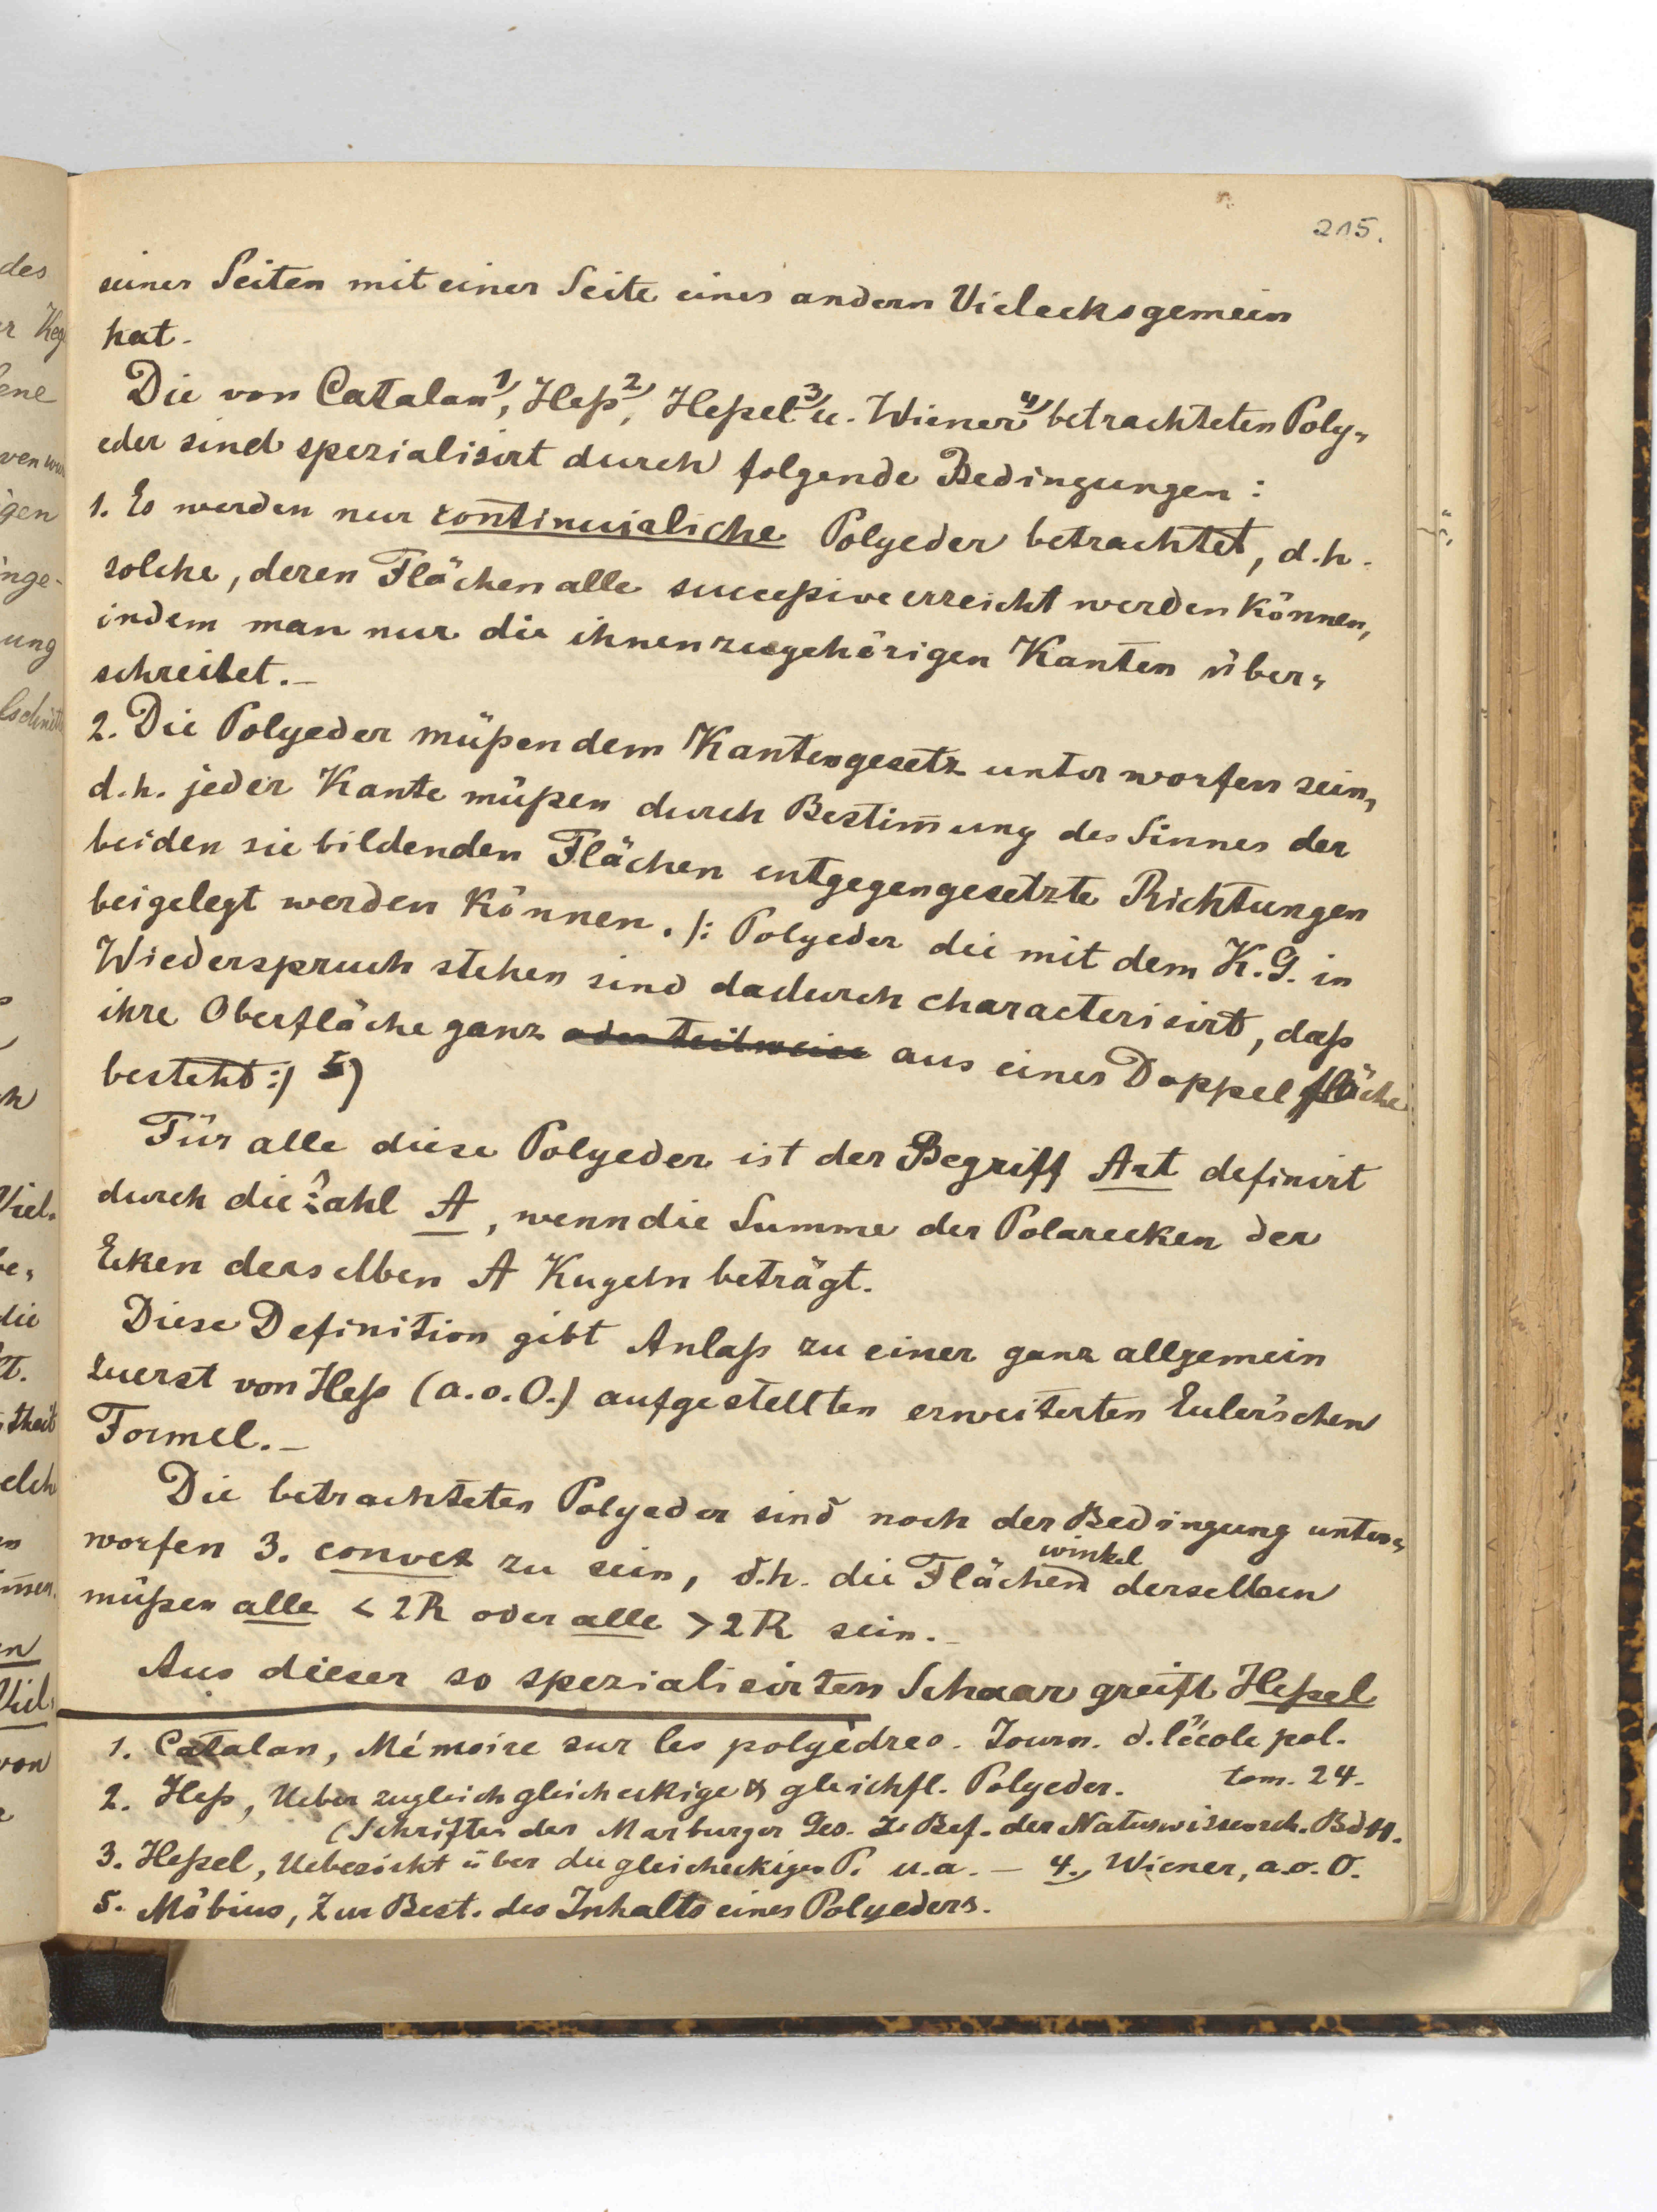 215.
seiner Seiten mit einer Seite eines andern Vielecks gemein
hat.
Die von Catalan 1), Heß 2), Heßel 3) u. Wiener 4) betrachteten Poly-
eder sind spezialisirt durch folgende Bedingungen:
1. Es werden nur continuirliche Polyeder betrachtet, d.h.
solche, deren Flächen alle succeßive erreicht werden können,
indem man nur die ihnen zugehörigen Kanten über-
schreitet.—
2. Die Polyeder müßen dem Kantengesetz unterworfen sein,
d.h. jeder Kante müßen durch Bestim̄ung des Sinnes der
beiden sie bildenden Flächen entgegengesetzte Richtungen
beigelegt werden können. /: Polyeder die mit dem K.G. in
Wiederspruch stehen sind dadurch characterisirt, daß
ihre Oberfläche ganz oder teilweise aus einer Doppelfläche
besteht :/ 5)
Für alle diese Polyeder ist der Begriff Art definirt
durch die Zahl A, wenn die Summe der Polarecken der
Ecken derselben A Kugeln beträgt.
Diese Definition gibt Anlaß zu einer ganz allgemein
zuerst von Heß (a.o.O.) aufgestellten erweiterten Euler'schen
Formel.—
Die betrachteten Polyeder sind noch der Bedingung unter-
worfen 3. convex zu sein, d.h. die Flächenwinkel derselben
müßen alle < 2R oder alle > 2R sein.—
Aus dieser so spezialisirten Schaar greift Heßel
1. Catalan, Mémoire sur les polyèdres. Journ. d. l'école pol.
tom. 24.
2. Heß, Ueber zugleich gleicheckige & gleichfl. Polyeder.
(Schriften der Marburger Ges. z. Bef. der Naturwissensch. Bd 11.
3. Heßel, Uebersicht über die gleicheckigen P. u.a. — 4., Wiener, a.o.O.
5. Möbius, Zur Best. des Inhalts eines Polyeders.